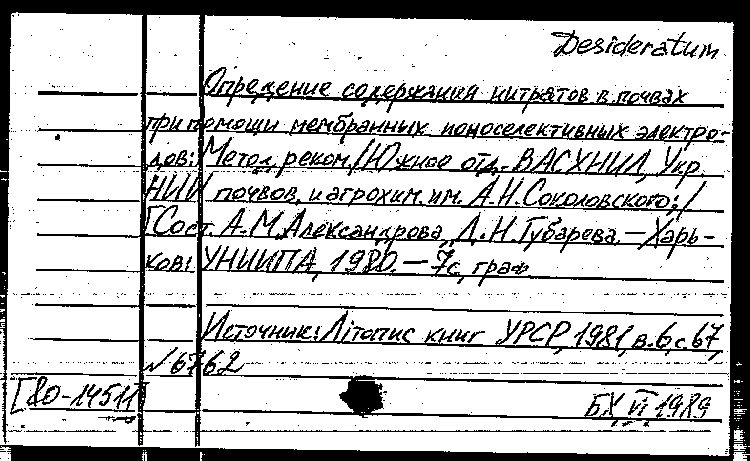 Desideratum
Определение содержания нитратов в почвах
при помощи мембранных ионоселективных электро-
дов: Метод. реком./Южное отд. ВАСХНИЛ, Укр.
НИИ почвов. и агрохим. им. А.Н. Соколовского; /
[Сост. А.М. Александрова, Л.Н. Губарева. — Харь-
ков: УНИИПА, 1980. — 7с., граф.
Источник: Літопис книг УРСР, 1981, в.6, с.67,
№6762
[80-14511]
БХ VI 1989